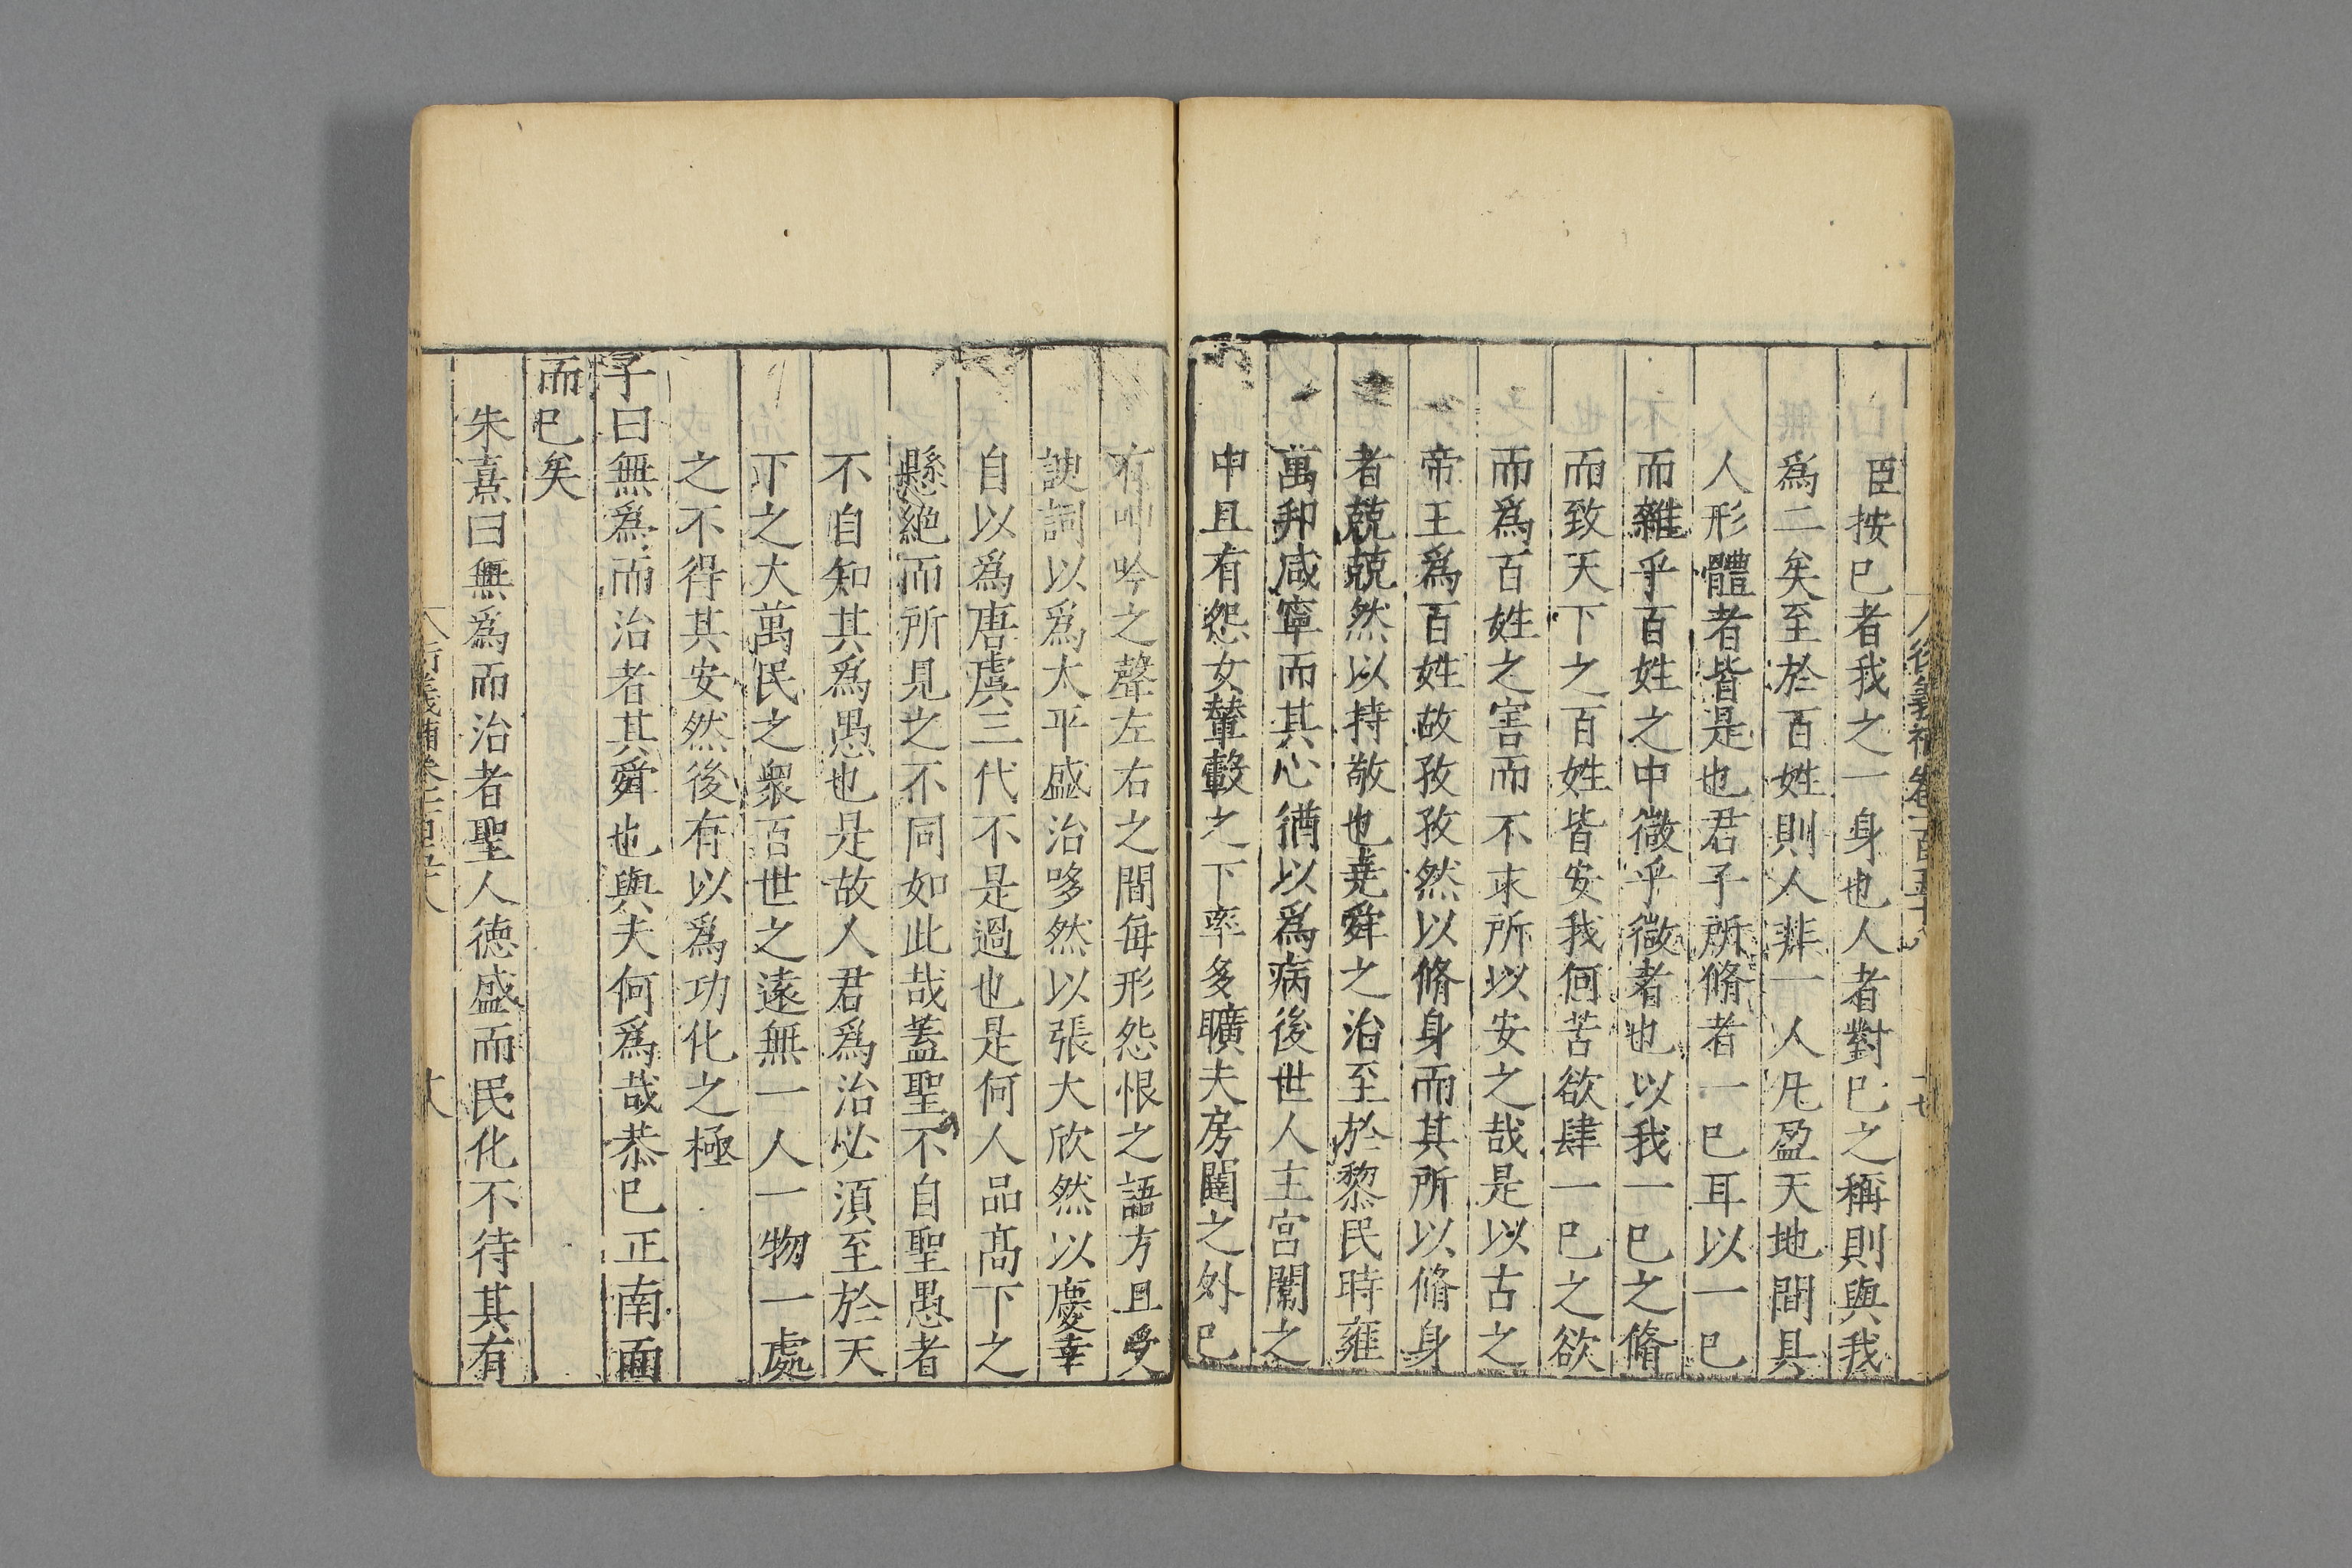 臣按己者我之一身也人者對己之稱則與我
爲二矣至於百姓則人非一人凡盈天地間具
人形體者皆是也君子所脩者一己耳以一己
而雜乎百姓之中微乎微者也以我一己之脩
而致天下之百姓皆安我何苦欲肆一己之欲
而爲百姓之害而不求所以安之哉是以古之
帝王爲百姓故孜孜然以脩身而其所以脩身
者兢兢然以持敬也堯舜之治至於黎民時雍
萬邦咸寧而其心猶以爲病後世人主宮闈之
中且有怨女輦轂之下率多曠夫房闥之外已
有呻吟之聲左右之間每形怨恨之語方且受
諛詞以爲太平盛治哆然以張大欣然以慶幸
自以爲唐虞三代不是過也是何人品高下之
懸絶而所見之不同如此哉蓋聖不自聖愚者
不自知其爲愚也是故人君爲治必須至於天
下之大萬民之衆百世之遠無一人一物一處
之不得其安然後有以爲功化之極
子曰無爲而治者其舜也與夫何爲哉恭己正南面
而已矣
朱熹曰無爲而治者聖人德盛而民化不待其有